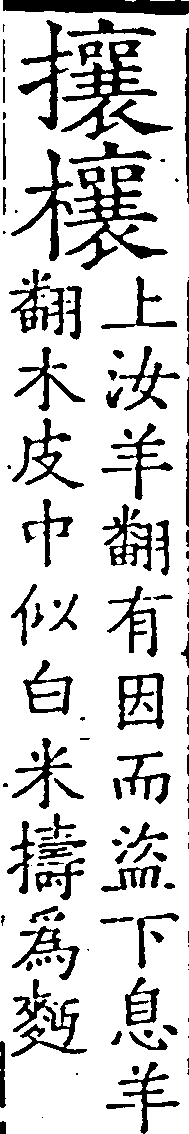 攘欀
上汝羊翻有因而盜下息羊
翻木皮中似白米擣為麪